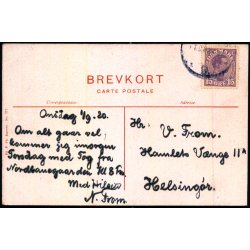 BREVKORT
CARTE POSTALE
Onsdag 1/9. 20.
Om alt gaar vel
kommer jeg imorgen
Torsdag med Tog fra
Nordbanegaarden Kl 8 Fm
Med Hilsen
N. From
15 15
Hr. V. From.
Hamlets Vænge 11A
Helsingör.